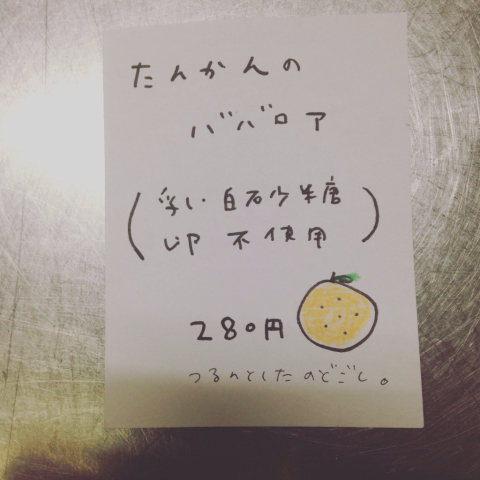 たんかんの
ババロア
(乳・白砂糖
卵 不使用)
280円
つるんとしたのどごし。